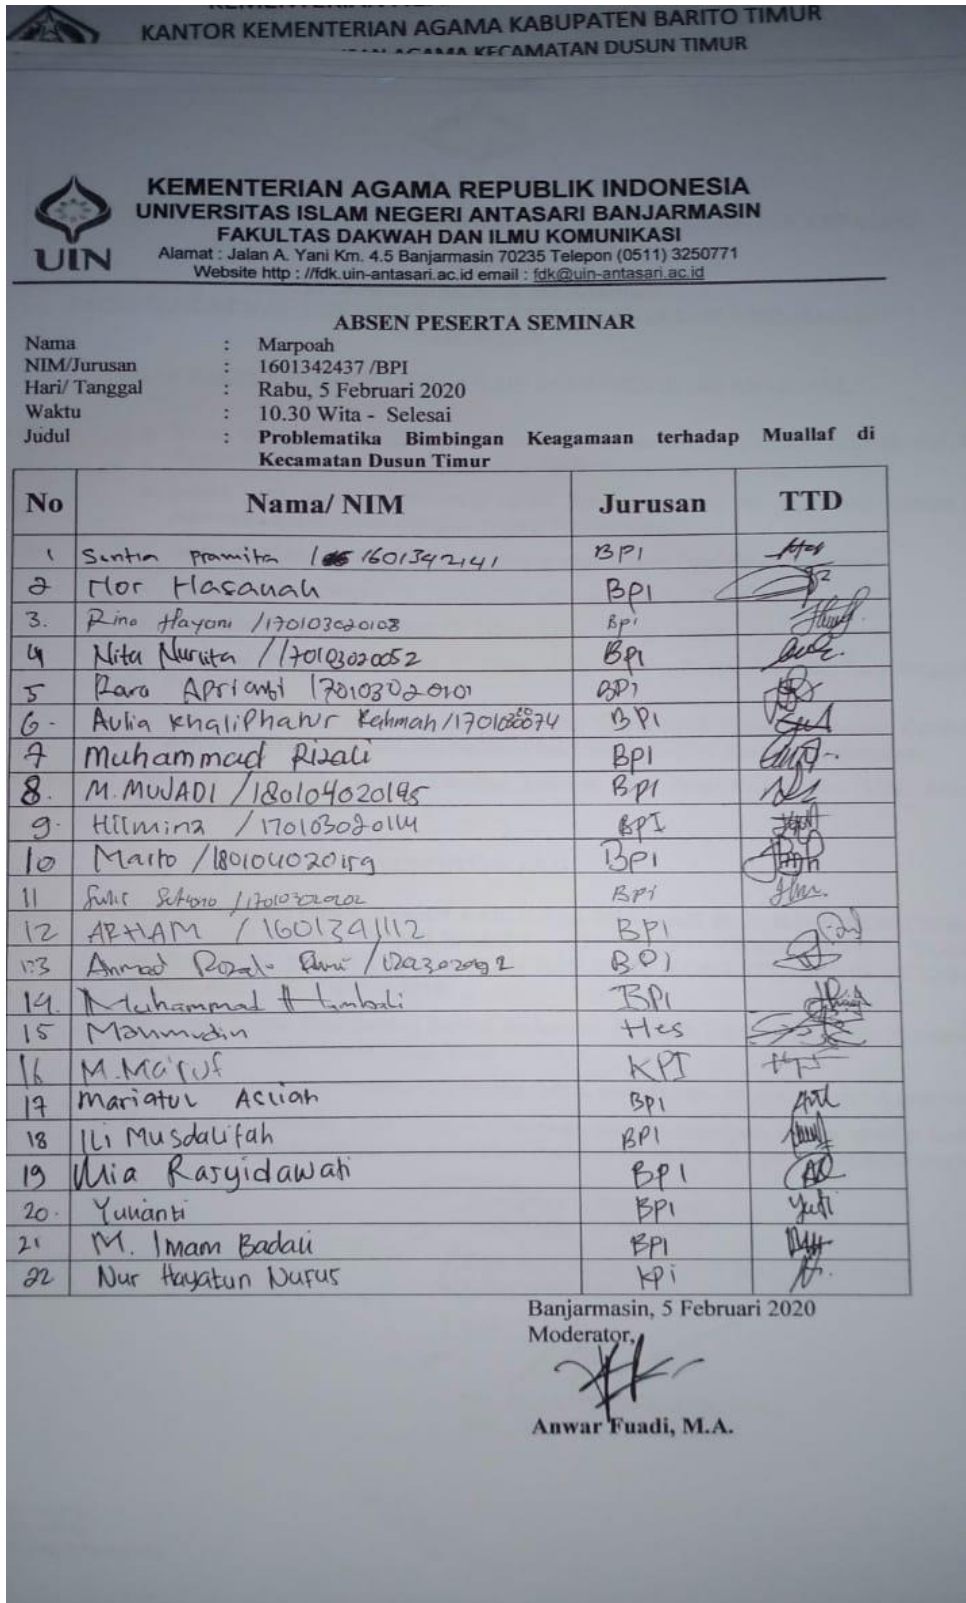 KANTOR KEMENTERIAN AGAMA KABUPATEN BARITO TIMUR
AGAMA KECAMATAN DUSUN TIMUR
KEMENTERIAN AGAMA REPUBLIK INDONESIA
UNIVERSITAS ISLAM NEGERI ANTASARI BANJARMASIN
FAKULTAS DAKWAH DAN ILMU KOMUNIKASI
UIN
Alamat : Jalan A. Yani Km. 4.5 Banjarmasin 70235 Telepon (0511) 3250771
Website http : //fdk.uin-antasari.ac.id email : fdk@uin-antasari.ac.id
ABSEN PESERTA SEMINAR
Nama : Marpoah
NIM/Jurusan : 1601342437 /BPI
Hari/ Tanggal : Rabu, 5 Februari 2020
Waktu : 10.30 Wita - Selesai
Judul : Problematika Bimbingan Keagamaan terhadap Muallaf di
Kecamatan Dusun Timur
No Nama/ NIM Jurusan TTD
1 Santia Pramita / 1601342141 BPI
2 Nor Hasanah BPI
3. Rina Hayani /170103020108 Bpi
4 Nita Nurlita /170103020052 BPI
5 Rara Aprianti 170103020101 BPI
6. Aulia Khaliphatur Rahmah/ BPI
7 Muhammad Rizali BPI
8. M. MUJADI /180104020195 BPI
9. Hilmina /170103020114 BPI
10 Marto /180104020159 BPI
11 BPi
12 ARHAM / 1601341112 BPI
13 Ahmad BPI
14. Muhammad Hambali BPI
15 Mahmudin Hes
16 M. Ma'ruf KPI
17 Mariatul Asliah BPI
18 Ili Musdalifah BPI
19 Mia Rasyidawati BPI
20. Yulianti BPI
21 M. Imam Badali BPI
22 Nur Hayatun Nufus KPi
Banjarmasin, 5 Februari 2020
Moderator,
Anwar Fuadi, M.A.